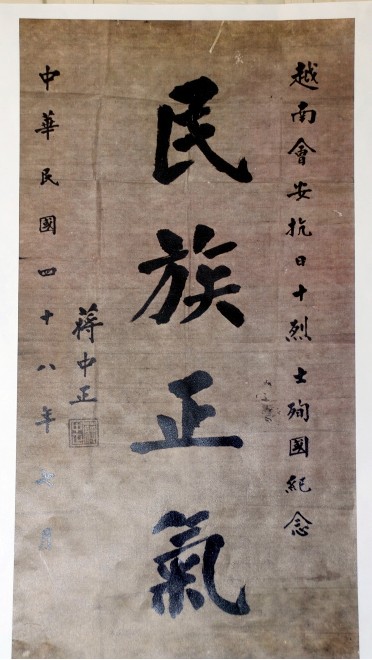 越南會安抗日十烈士殉國紀念
民族正氣
蔣中正
中華民國四十八年七月